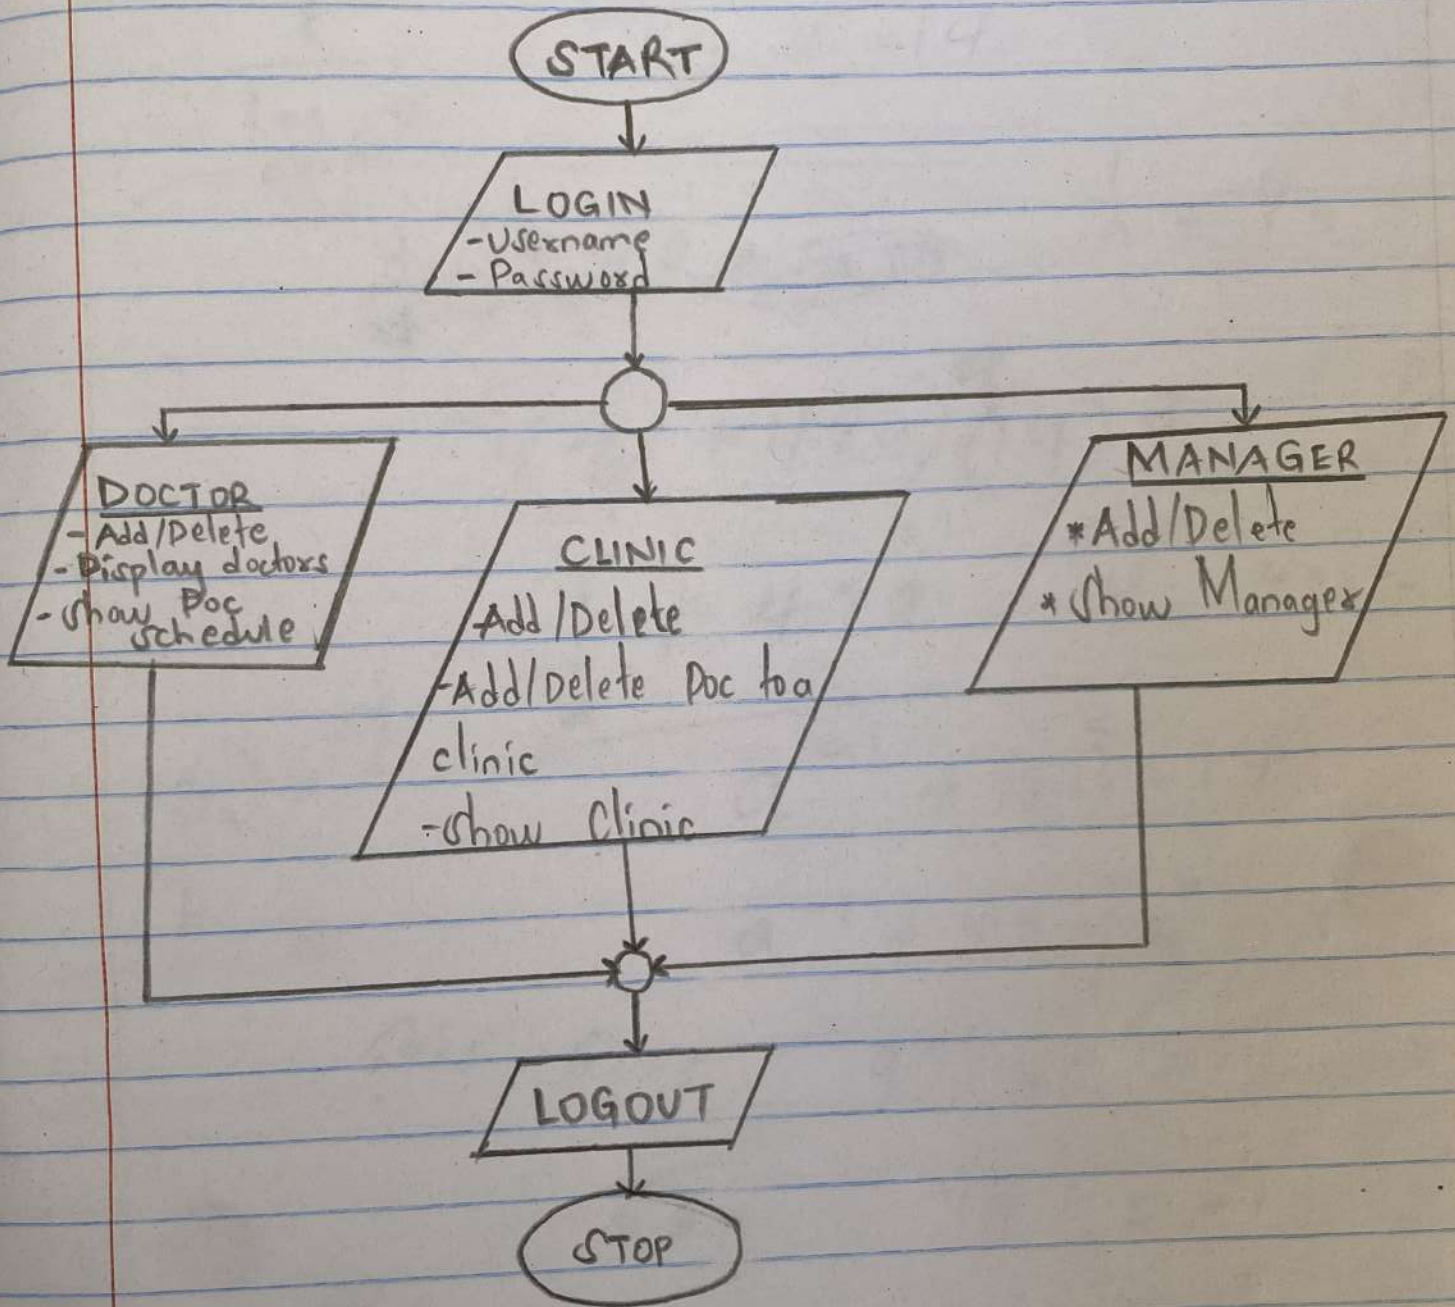 START
LOGIN
-Username
- Password
DOCTOR
- Add/Delete
- Display doctors
- Show Doc
schedule
CLINIC
-Add/Delete
-Add/Delete Doc to a
clinic
-Show Clinic
MANAGER
* Add/Delete
* Show Manager
LOGOUT
STOP